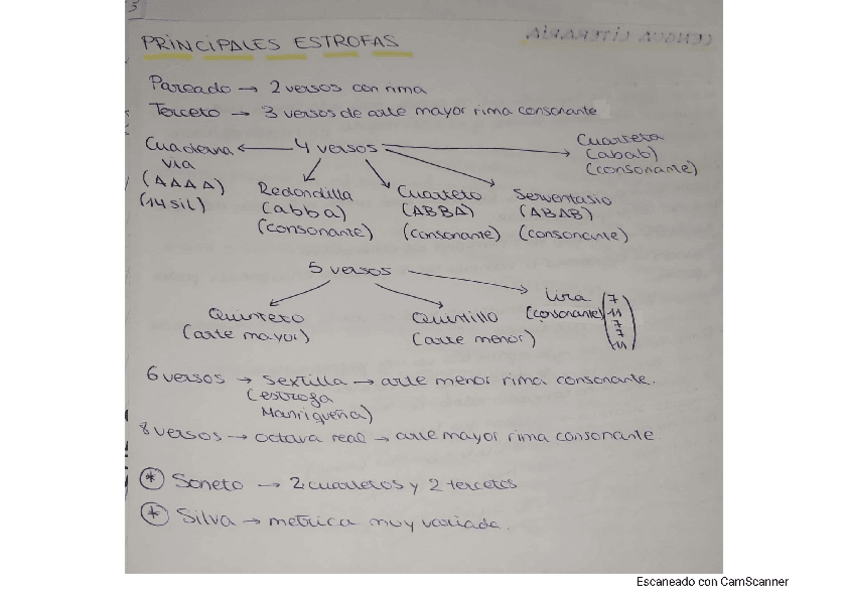 5
PRINCIPALES ESTROFAS
LENGUA LITERARIA
Pareado → 2 versos con rima
Terceto → 3 versos de arte mayor rima consonante
Cuaderna via (AAAA) (14 sil)
4 versos
Cuarteta (abab) (consonante)
Redondilla (abba) (consonante)
Cuarteto (ABBA) (consonante)
Serventasio (ABAB) (consonante)
5 versos
Quinteto (arte mayor)
Quintillo (arte menor)
Lira (consonante) 7 11 7 7 11
6 versos → sextilla → arte menor rima consonante.
(estrofa Manriqueña)
8 versos → octava real → arte mayor rima consonante
* Soneto → 2 cuartetos y 2 tercetos
* Silva → metrica muy variada.
Escaneado con CamScanner